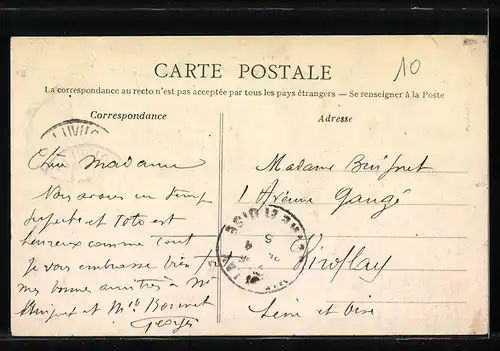 10
CARTE POSTALE
La correspondance au recto n'est pas acceptée par tous les pays étrangers. — Se renseigner à la Poste
Correspondance
Adresse
Chère Madame
Nous avons un temps
superbe et Toto est
heureux comme tout
je vous embrasse bien
mes bonnes amitiés à Mr
et Mlle Bonnet
Georges
Madame Buisnet
1 Avenue Gaugé
Viroflay
Seine et Oise
SEINE ET OISE